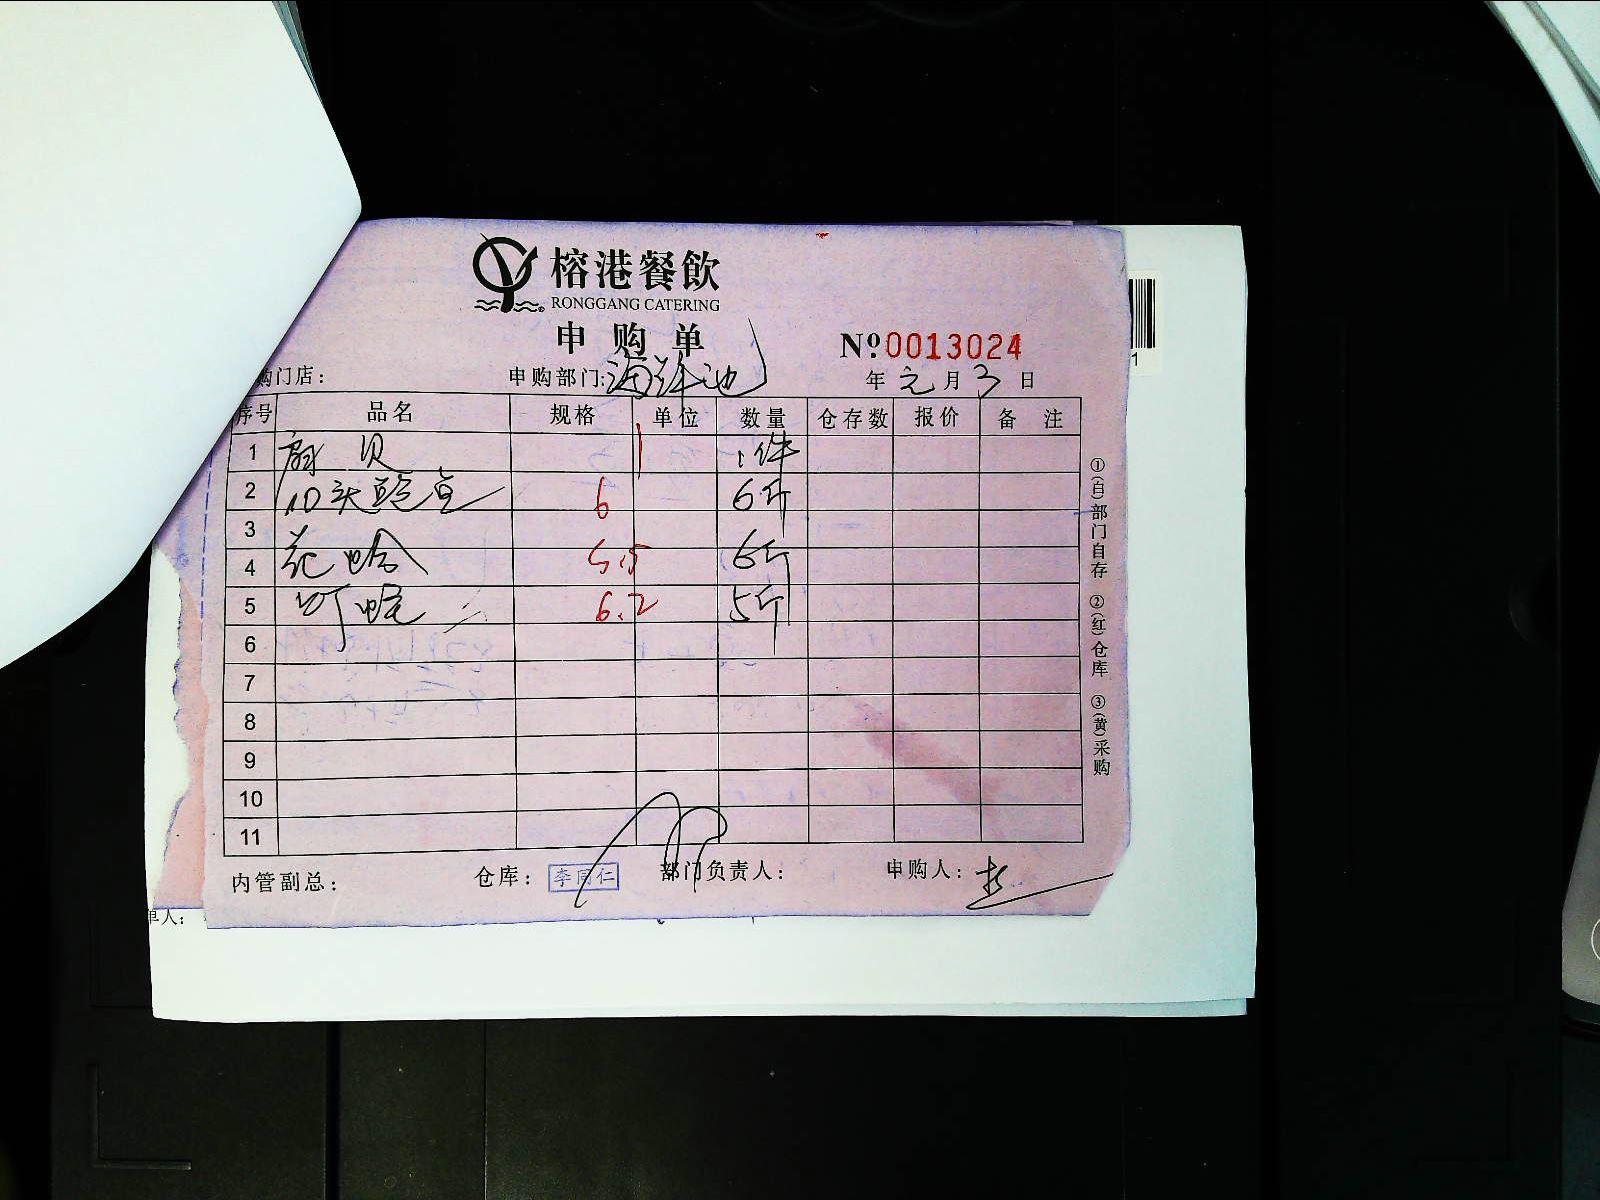 榕港餐飲
RONGGANG CATERING
申购单
№ 0013024
购门店： 申购部门：海鲜池 年 元 月 3 日
序号 品名 规格 单位 数量 仓存数 报价 备注
1 扇贝 1 1件
2 10头鲍鱼 6 6斤
3
4 花蛤 5.5 6斤
5 6.2 5斤
6
7
8
9
10
11
①(白)部门自存 ②(红)仓库 ③(黄)采购
内管副总： 仓库：李同仁 部门负责人： 申购人：
单人：
1